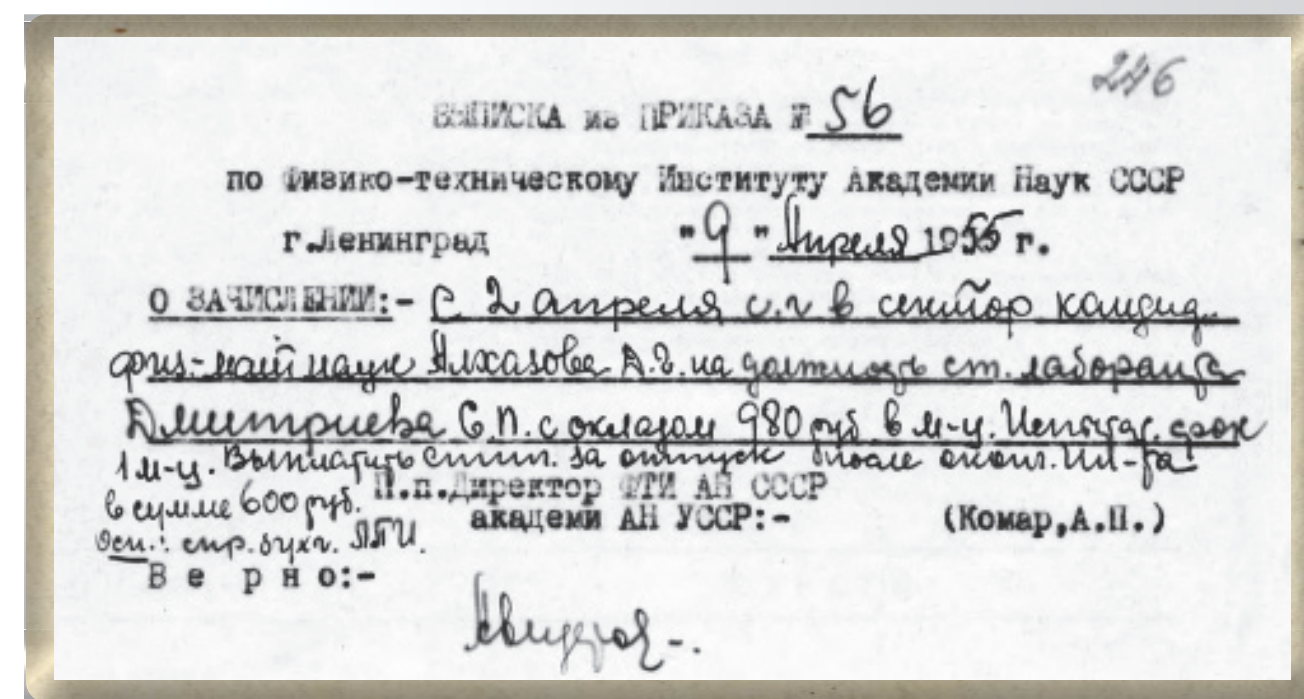 246
ВЫПИСКА из ПРИКАЗА № 56
по Физико-техническому Институту Академии Наук СССР
г.Ленинград "9" Апреля 1955 г.
О ЗАЧИСЛЕНИИ:- С 2 апреля с.г в сектор кандид.
физ-мат наук Алхазова Д.Г. на должность ст. лаборанта
Дмитриева С.П. с окладом 980 руб в м-ц. Испытат. срок
1 м-ц. Выплатить стип. за отпуск после оконч. ин-та
в сумме 600 руб.
П.п.Директор ФТИ АН СССР
академи АН УССР:- (Комар,А.П.)
Осн.: спр. бухг. ЛПИ.
В е р н о:-